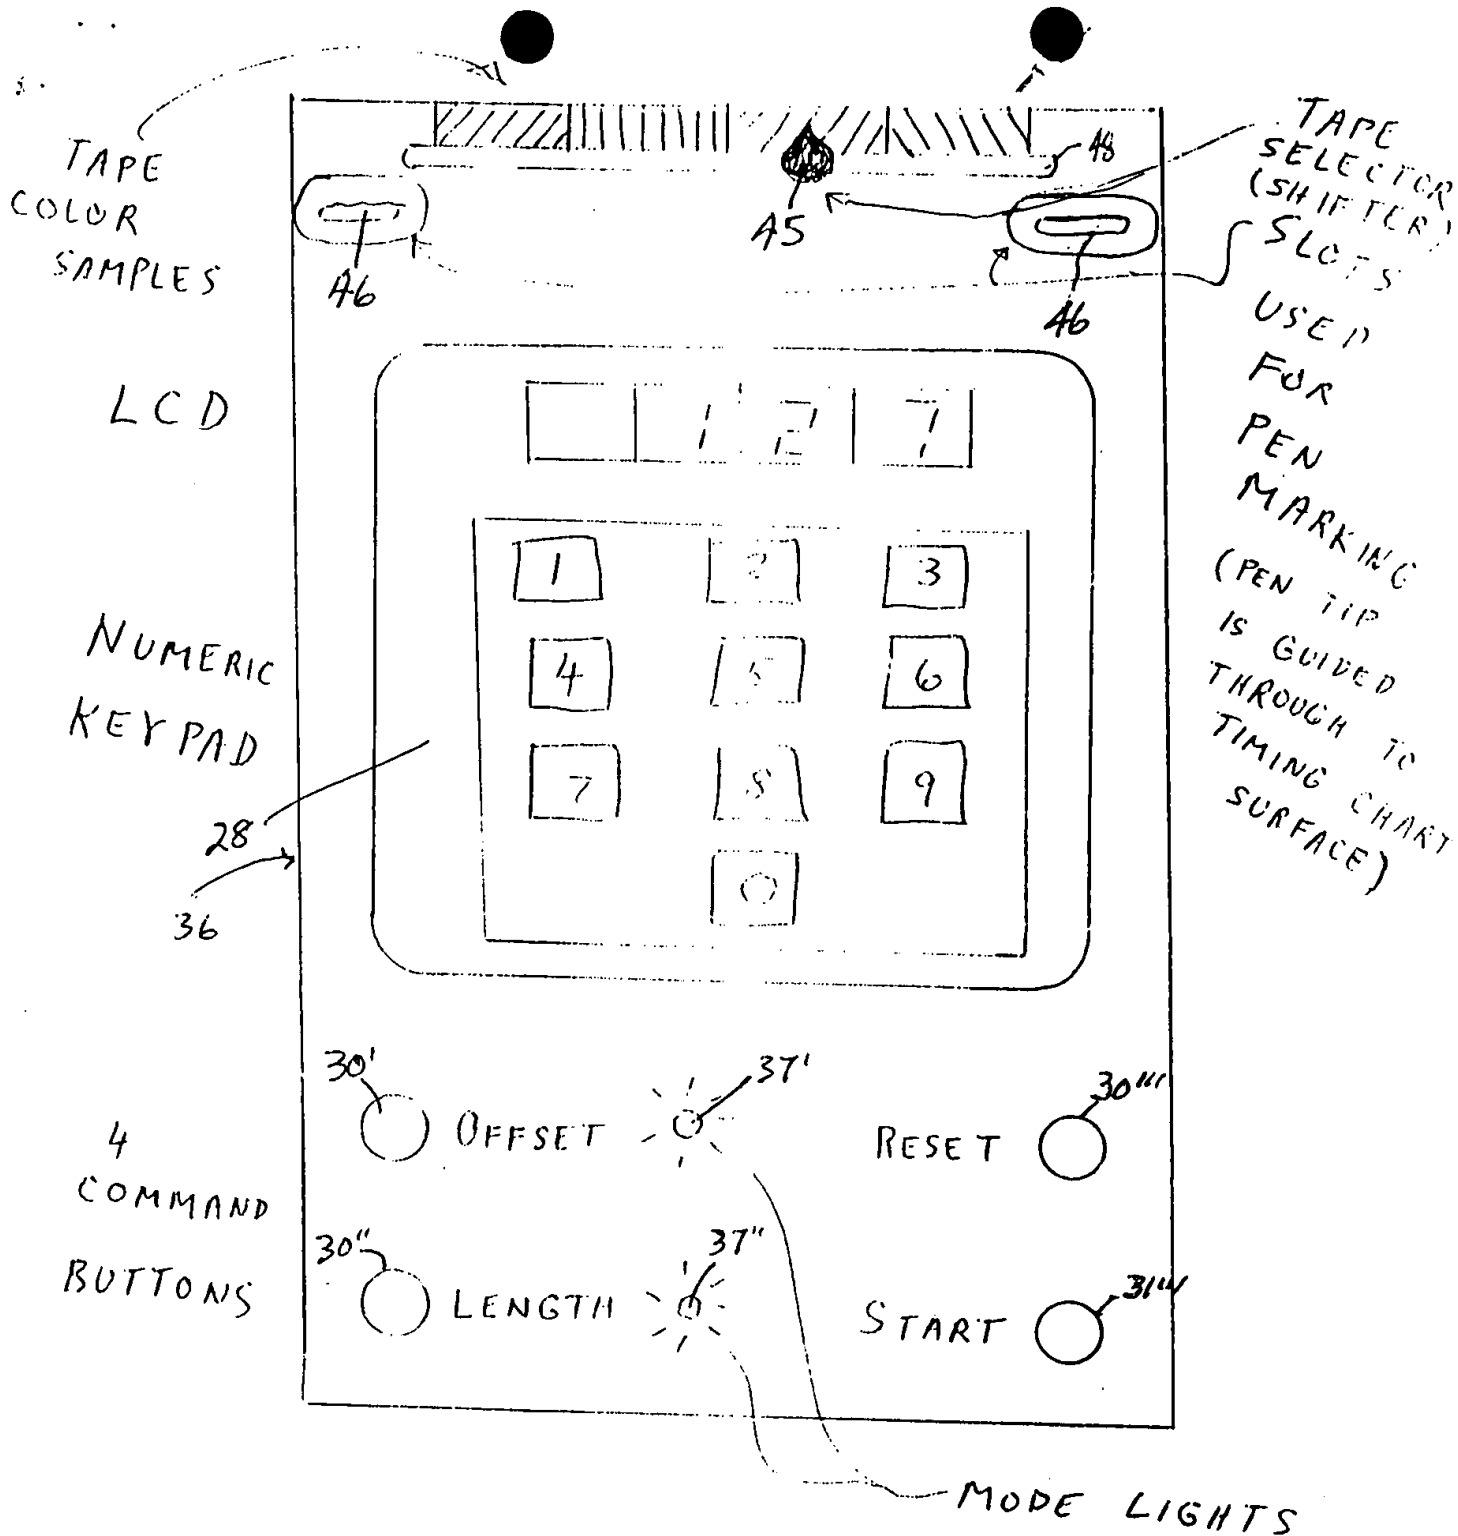 TAPE
COLOR
SAMPLES
TAPE
SELECTOR
(SHIFTER)
SLOTS
USED
FOR
PEN
MARKING
(PEN TIP
IS GUIDED
THROUGH TO
TIMING CHART
SURFACE)
48
45
46
46
LCD
1 2 7
NUMERIC
KEYPAD
1 2 3
4 5 6
7 8 9
0
28
36
4
COMMAND
BUTTONS
30' OFFSET 37'
RESET 30'''
30" LENGTH 37"
START 31''''
MODE LIGHTS